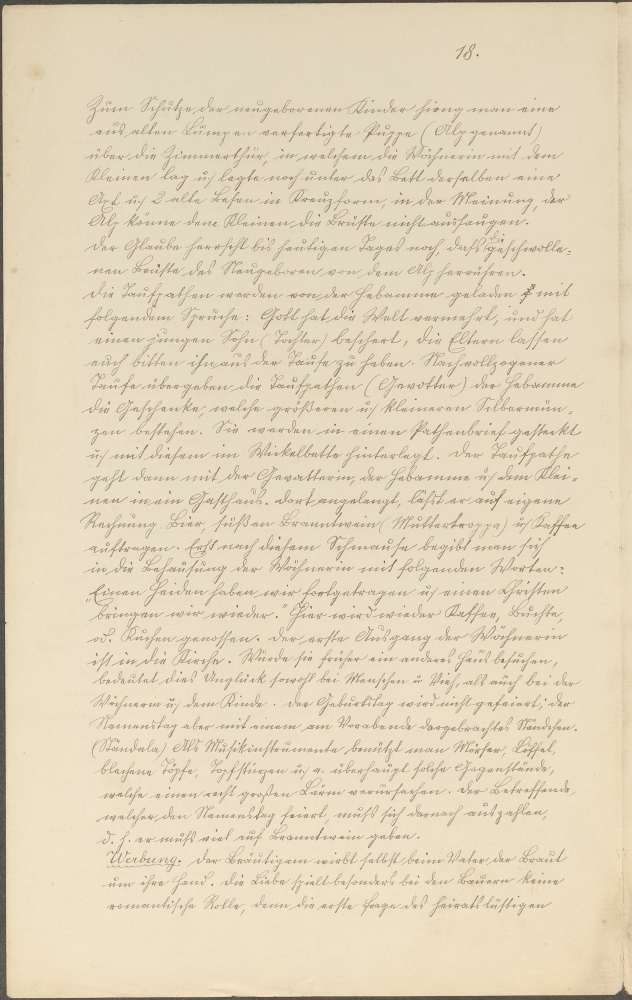 18.
Zum Schutze der neugeborenen Kinder hieng man eine
aus alten Lumpen verfertigte Puppe (Alp genannt)
über die Zimmerthür, in welchem die Wöchnerin mit dem
Kleinen lag u. legte noch unter das Bett derselben eine
Axt u. 2 alte Besen in Kreuzform, in der Meinung, der
Alp könne dem Kleinen die Brüste nicht aussaugen.
Der Glaube herrscht bis heutigen Tages noch, dass die geschwolle-
nen Brüste des Neugeboren von dem Alp herrühren.
Die Taufpathen werden von der Hebamme geladen mit
folgendem Spruche: Gott hat die Welt vermehrt, und hat
einen jungen Sohn (Tochter) beschert, die Eltern lassen
euch bitten ihn aus der Taufe zu heben. Nach vollzogener
Taufe übergeben die Taufpathen (Gevatter) der Hebamme
die Geschenke, welche größeren u. kleineren Silbermün-
zen bestehen. Sie werden in einen Pathenbrief gesteckt
u. mit diesem im Wickelbette hinterlegt. Der Taufpathe
geht dann mit der Gevatterin, der Hebamme u. dem Klei-
nen in ein Gasthaus. Dort angelangt, läßt er auf eigene
Rechnung Bier, süßen Branntwein (Muttertroppa) u. Kaffee
auftragen. Erst nach diesem Schmause begibt man sich
in die Behausung der Wöchnerin mit folgenden Worten:
"Einen Heiden haben wir fortgetragen u. einen Christen
bringen wir wieder." Hier wird wieder Kaffee, Buchte,
od. Kuchen genossen. Der erste Ausgang der Wöchnerin
ist in die Kirche. Würde sie früher ein anderes Haus besuchen,
bedeutet dies Unglück sowohl bei Menschen u. Vieh, als auch bei der
Wöchnerin u. dem Kinde. Der Geburtstag wird nicht gefeiert; der
Namenstag aber mit einem am Vorabende dargebrachtes Ständchen.
(Standala) Als Musikinstrumente benützt man Mörser, Löffel,
blecherne Töpfe, Topfstürzen u. a. überhaupt solche Gegenstände,
welche einen recht großen Lärm verursachen. Der Betreffende,
welcher den Namenstag feiert, muß sich darnach auszahlen,
d. h. er muß viel auf Branntwein geben.
Werbung. Der Bräutigam wirbt selbst beim Vater der Braut
um ihre Hand. Die Liebe spielt besonders bei den Bauern keine
romantische Rolle, denn die erste Frage des Heiratslustigen